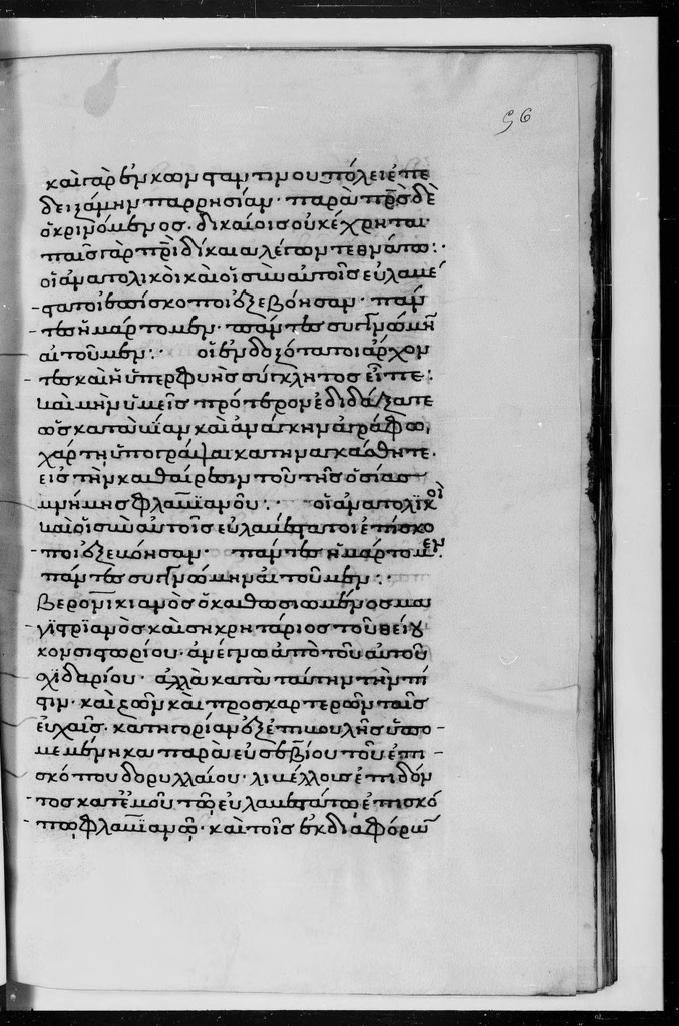 96
καὶ γὰρ ἐν κωνσταντινουπόλει ἐπε
δειξάμην παρρησίαν· παρὰ πρς δὲ
ὁ κρινόμενος. δικαίοις οὐ κέχρηται·
παῖς γὰρ περὶ δίκαια λέγων τεθνάτω :·
οἱ ἀνατολικοὶ καὶ οἱ σὺν αὐτοῖς εὐλαβέ
στατοι ἐπίσκοποι ἐξεβόησαν· πάν
τες ἡμάρτομεν· πάντες συγγνώμη
αἰτοῦμεν :· οἱ ἐνδοξότατοι ἄρχον
τες καὶ ἡ ὑπερφυὴς σύγκλητος εἶπε :
καὶ μὴν ὑμεῖς πρότερον ἐδιδάξατε
ὡς κατὰ βίαν καὶ ἀνάγκην ἀγράφω,
χάρτη ὑπογράψαι κατηναγκάσθητε·
εἰς τὴν καθαίρεσιν τοῦ τῆς ὁσίας
μνήμης φλαϊανοῦ :· οἱ ἀνατολικοὶ
καὶ οἱ σὺν αὐτοῖς εὐλαβέστατοι ἐπίσκο
ποι ἐξεβόησαν· πάντες ἡμάρτομεν·
πάντες συγγνώμην αἰτοῦμεν :·
βερονικιανὸς ὁ καθωσιωμένος μα
γιστριανὸς καὶ σηκρητάριος τοῦ θείου
κονσιστωρίου· ἀνέγνω ἀπὸ τοῦ αὐτοῦ
σχιδαρίου· ἀλλὰ κατὰ ταύτην τὴν πί
στιν· καὶ ζῶν καὶ προσκαρτερῶν ταῖς
εὐχαῖς· κατηγορίαν ἐξ ἐπιβουλῆς ὑπο
μεμένηκα παρὰ εὐσεβίου τοῦ ἐπι
σκόπου δορυλλαίου· λιβέλλους ἐπιδόν
τος κατ' ἐμοῦ τῷ εὐλαβεστάτῳ ἐπισκό
πῳ φλαϊανῷ· καὶ τοῖς ἐκ διαφόρων